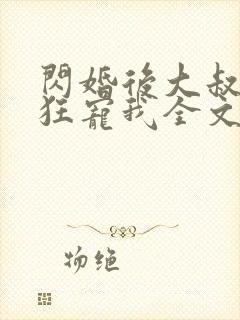 閃婚後大叔
狂寵我全文
物绝